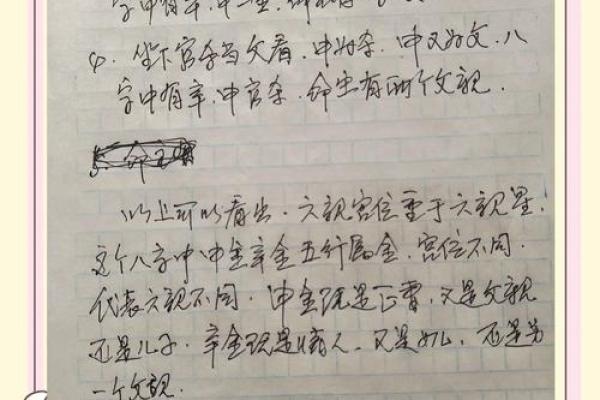 字中有辛.申一坐
4. 坐下官杀当父看,申为杀.申又为父.八
字中有辛.申官杀.命主有两个父亲.
以上可以看出.六亲宫位重于六亲星;
这个八字中申金辛金五行属金,宫位不同.
代表六亲不同.申金既是正曹,又是父亲
还是儿子.辛金既是情人.又是女儿.还是另
一个父亲.